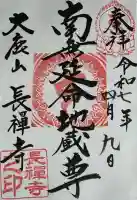 奉拝
令和七年
四月九日
南無延命地蔵尊
大辰山
長禅寺
長禪寺
之印